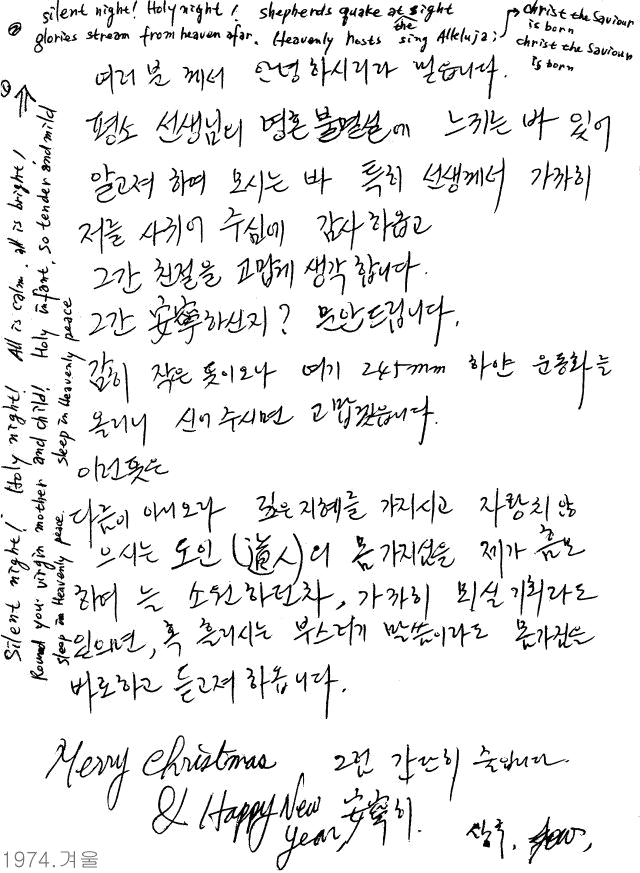 ② silent night! Holy night! shepherds quake at sight
glories stream from heaven afar. Heavenly hosts the sing Alleluja;
→ christ the Saviour
is born
christ the Saviour
is born
① Silent night! Holy night! All is calm. all is bright!
Round you virgin mother and child! Holy infant, so tender and mild
sleep in Heavenly peace. sleep in Heavenly peace
여러분께서 안녕하시리라 믿습니다.
평소 선생님의 영혼불멸설에 느끼는 바 있어
알고져 하며 모시는 바 특히 선생께서 가까히
저를 사귀어 주심에 감사하옵고
그간 친절을 고맙게 생각합니다.
그간 安寧하신지? 문안드립니다.
감히 작은 뜻이오나 여기 245mm 하얀 운동화를
올리니 신어주시면 고맙겠읍니다.
이런 뜻은
다름이 아니오라 깊은 지혜를 가지시고 자랑치 않
으시는 도인(道人)의 몸가지심을 제가 흠모
하며 늘 소원하던차, 가까히 뫼실 기회라도
있으면, 혹 흘리시는 부스러기 말씀이라도 몸가짐을
바로하고 듣고져 하옵니다.
Merry christmas 그럼 간단히 줄입니다.
& Happy New 安寧히.
year,
1974.겨울